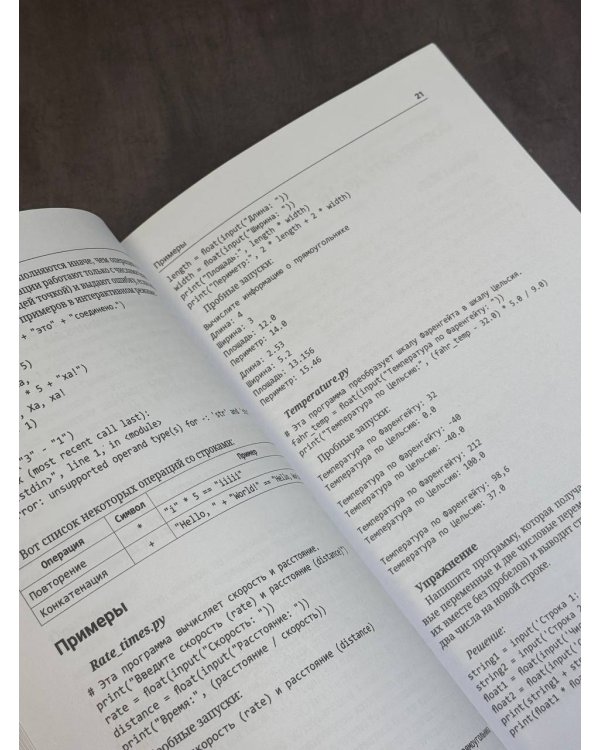 полняются иначе, чем опера
ции работают только с числами
щей точкой) и выдают ошибку, если
примеров в интерактивном режиме
+ "это" + "соединено.")
5)
* 5 + "ха!"
ха, ха!
1)
"3" - "1")
(most recent call last):
stdin>", line 1, in <module>
ror: unsupported operand type(s) for -: 'str' and
Вот список некоторых операций со строками:
Операция Символ Пример
Повторение * "i" * 5 == "iiiii"
Конкатенация + "Hello, " + "World!" == "Hello,
Примеры
Rate_times.py
# Эта программа вычисляет скорость и расстояние.
print("Введите скорость (rate) и расстояние (distance)")
rate = float(input("Скорость: "))
distance = float(input("Расстояние: "))
print("Время:", (расстояние / скорость))
робные запуски:
скорость (rate) и расстояние (distance)
21
Примеры
length = float(input("Длина: "))
width = float(input("Ширина: "))
print("Площадь:", length * width)
print("Периметр:", 2 * length + 2 * width)
Пробные запуски:
Вычислите информацию о прямоугольнике
Длина: 4
Ширина: 3
Площадь: 12.0
Периметр: 14.0
Длина: 2.53
Ширина: 5.2
Площадь: 13.156
Периметр: 15.46
Temperature.py
# Эта программа преобразует шкалу Фаренгейта в шкалу Цельсия.
fahr_temp = float(input("Температура по Фаренгейту: "))
print("Температура по Цельсию:", (fahr_temp - 32.0) * 5.0 / 9.0)
Пробные запуски:
Температура по Фаренгейту: 32
Температура по Цельсию: 0.0
Температура по Фаренгейту: -40
Температура по Цельсию: -40.0
Температура по Фаренгейту: 212
Температура по Цельсию: 100.0
Температура по Фаренгейту: 98,6
Температура по Цельсию: 37.0
Упражнение
Напишите программу, которая получа
вые переменные и две числовые перем
их вместе без пробелов) и выводит ст
два числа на новой строке.
Решение:
string1 = input('Строка 1:
string2 = input('Строка 2
float1 = float(input('Чис
float2 = float(input('
print(string1 + st
print(float1 * flo